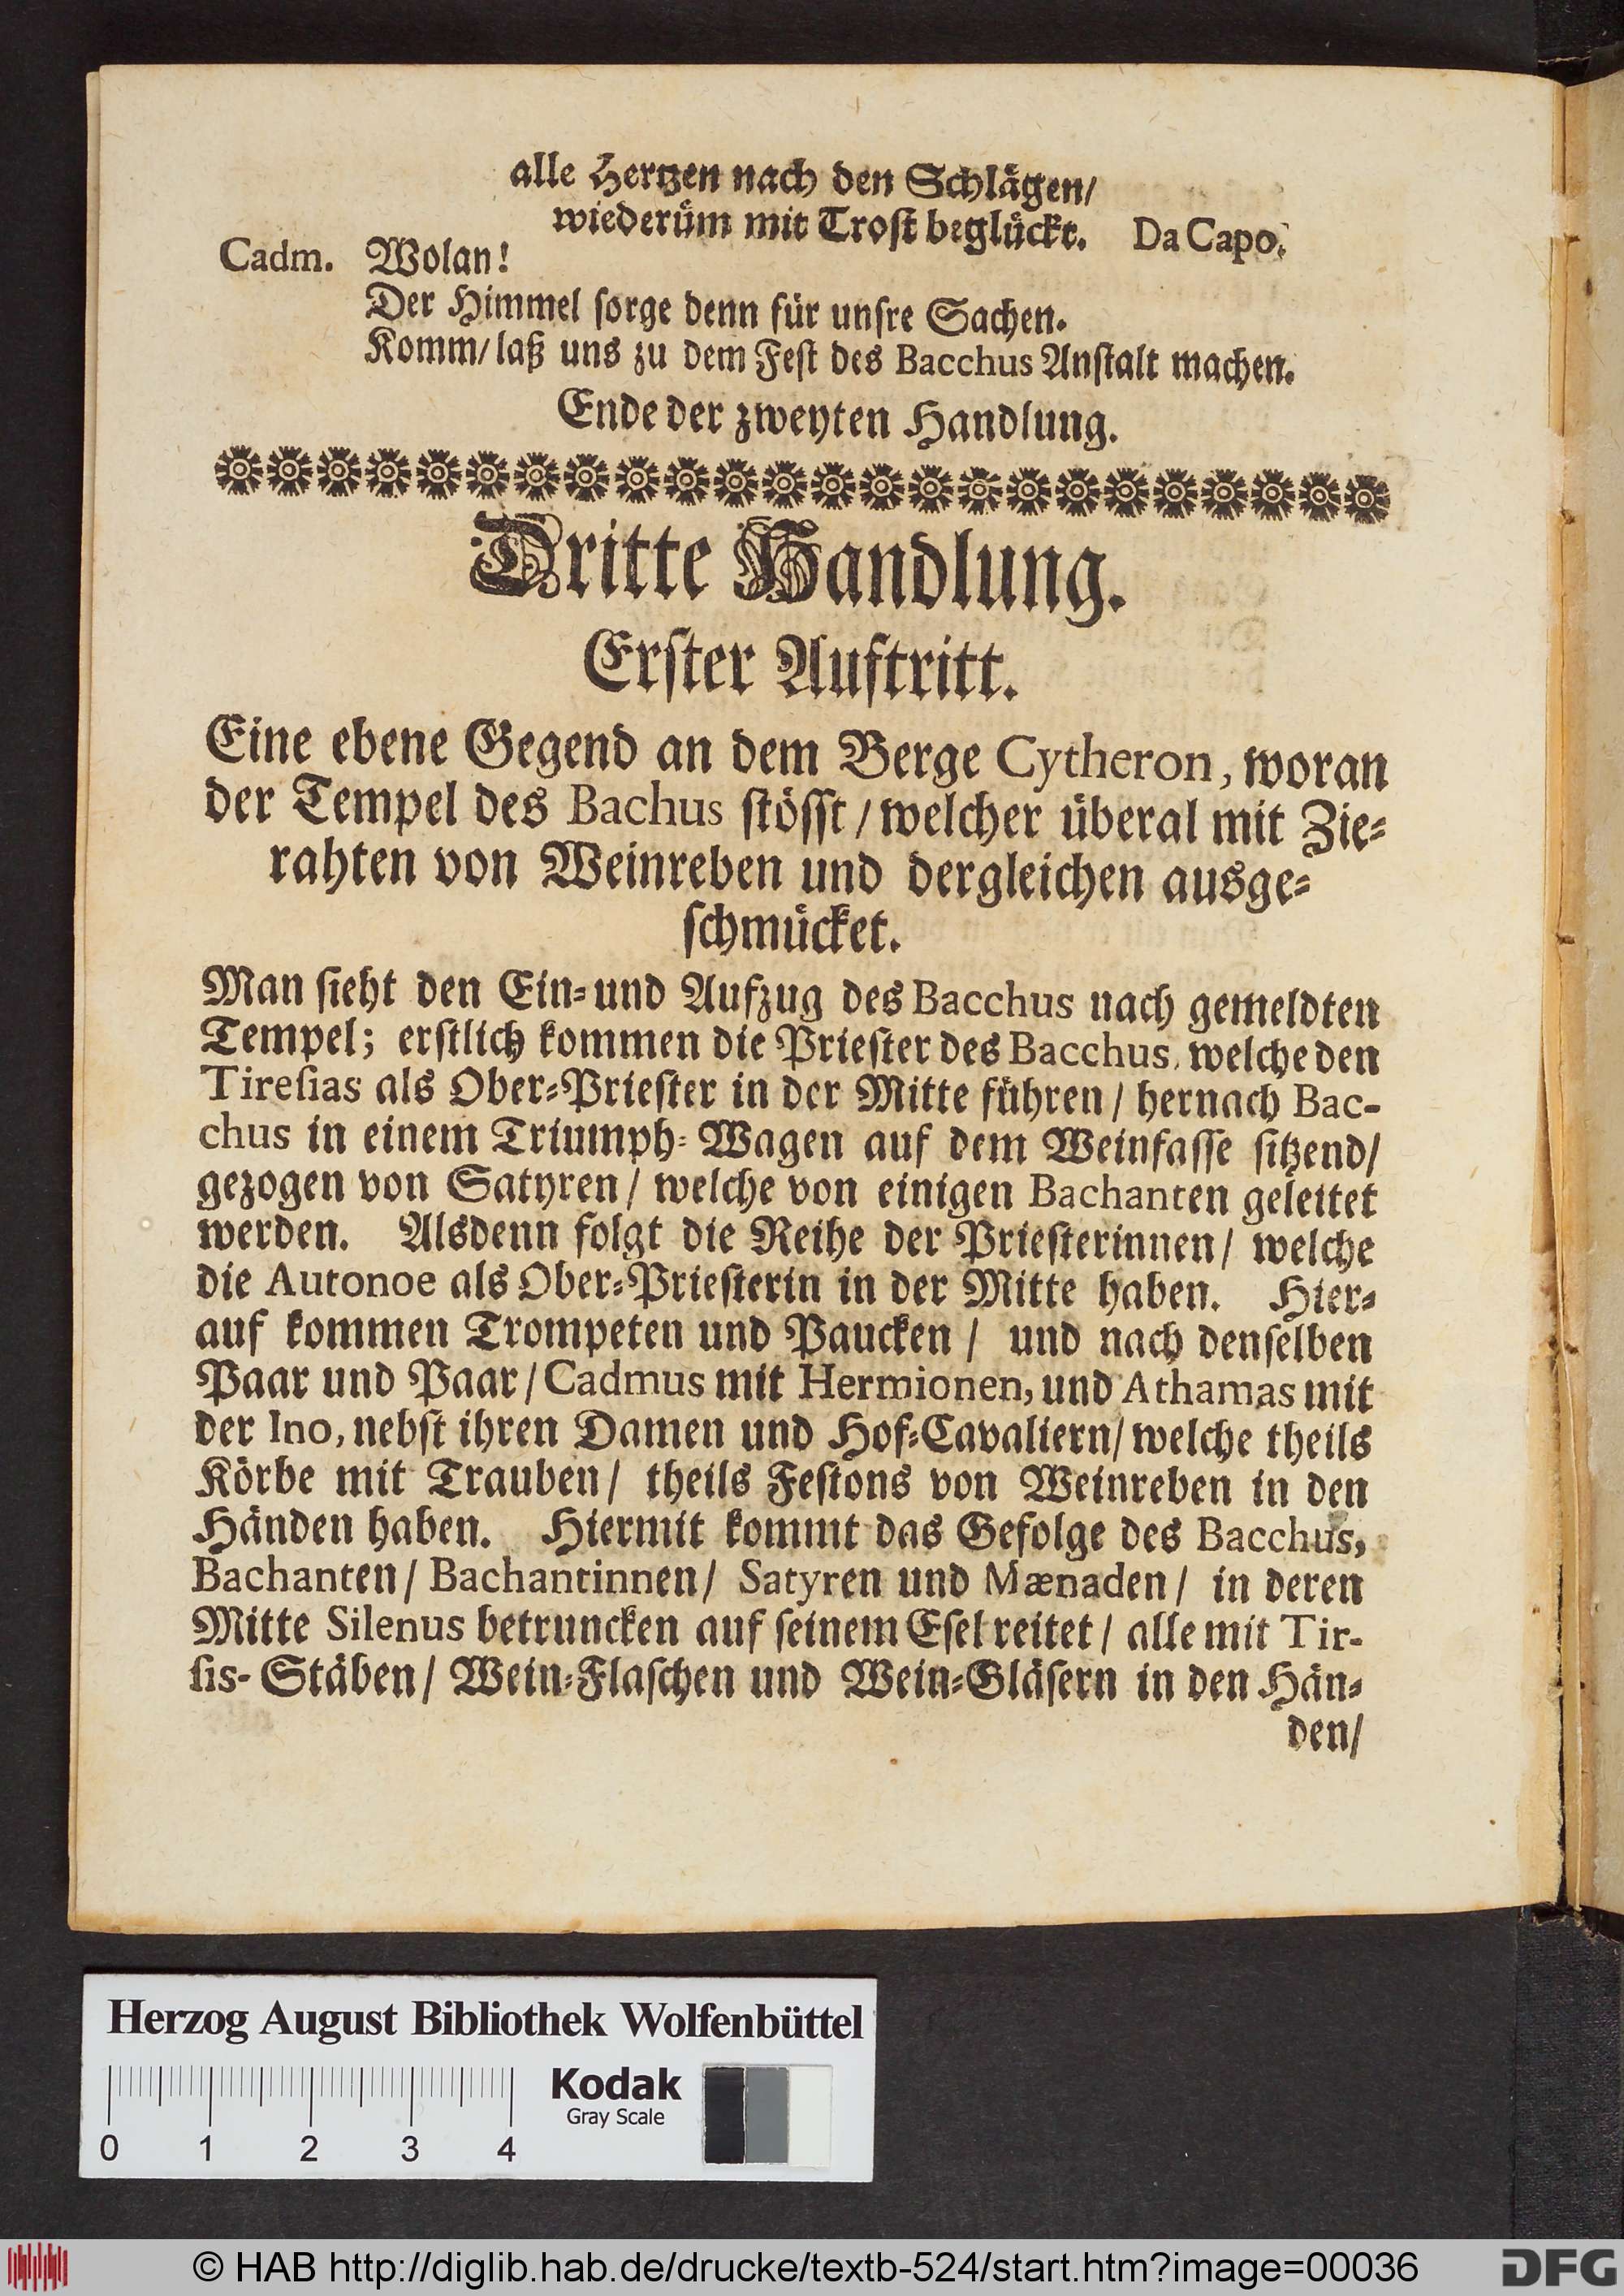 alle Hertzen nach den Schlägen/
wiederüm mit Trost beglückt. Da Capo.
Cadm. Wolan!
Der Himmel sorge denn für unsre Sachen.
Komm/ laß uns zu dem Fest des Bacchus Anstalt machen.
Ende der zweyten Handlung.
Dritte Handlung.
Erster Auftritt.
Eine ebene Gegend an dem Berge Cytheron, woran
der Tempel des Bachus stösst / welcher überal mit Zie-
rahten von Weinreben und dergleichen ausge-
schmücket.
Man sieht den Ein- und Aufzug des Bacchus nach gemeldten
Tempel; erstlich kommen die Priester des Bacchus, welche den
Tiresias als Ober-Priester in der Mitte führen / hernach Bac-
chus in einem Triumph-Wagen auf dem Weinfasse sitzend/
gezogen von Satyren / welche von einigen Bachanten geleitet
werden. Alsdenn folgt die Reihe der Priesterinnen/ welche
die Autonoe als Ober-Priesterin in der Mitte haben. Hier-
auf kommen Trompeten und Paucken / und nach denselben
Paar und Paar / Cadmus mit Hermionen, und Athamas mit
der Ino, nebst ihren Damen und Hof-Cavaliern/ welche theils
Körbe mit Trauben/ theils Festons von Weinreben in den
Händen haben. Hiermit kommt das Gefolge des Bacchus,
Bachanten/ Bachantinnen/ Satyren und Mænaden/ in deren
Mitte Silenus betruncken auf seinem Esel reitet / alle mit Tir-
sis- Stäben / Wein-Flaschen und Wein-Gläsern in den Hän-
den/
Herzog August Bibliothek Wolfenbüttel
Kodak
Gray Scale
0 1 2 3 4
© HAB http://diglib.hab.de/drucke/textb-524/start.htm?image=00036
DFG